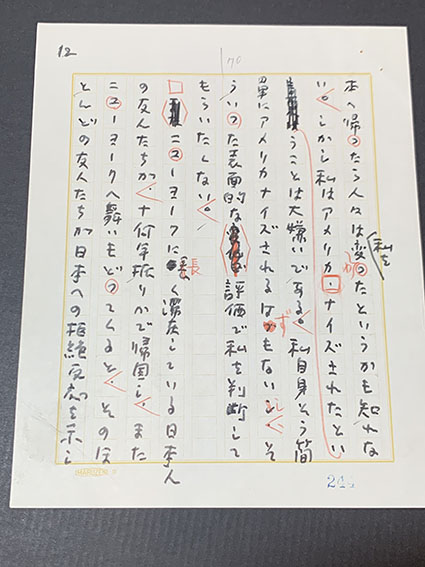 12
70
本へ帰ったら人々は私を変ったというかも知れな
い。しかし私はアメリカ・ナイズされたとい
うことは大嫌いである。私自身そう簡
単にアメリカナイズされるはずもないし、そ
ういった表面的な評価で私を判断して
もらいたくない。
ニューヨークに長く滞在している日本人
の友人たちが、十何年振りかで帰国し、また
ニューヨークへ舞いもどってくると、そのほ
とんどの友人たちが日本への拒絶反応を示し
244